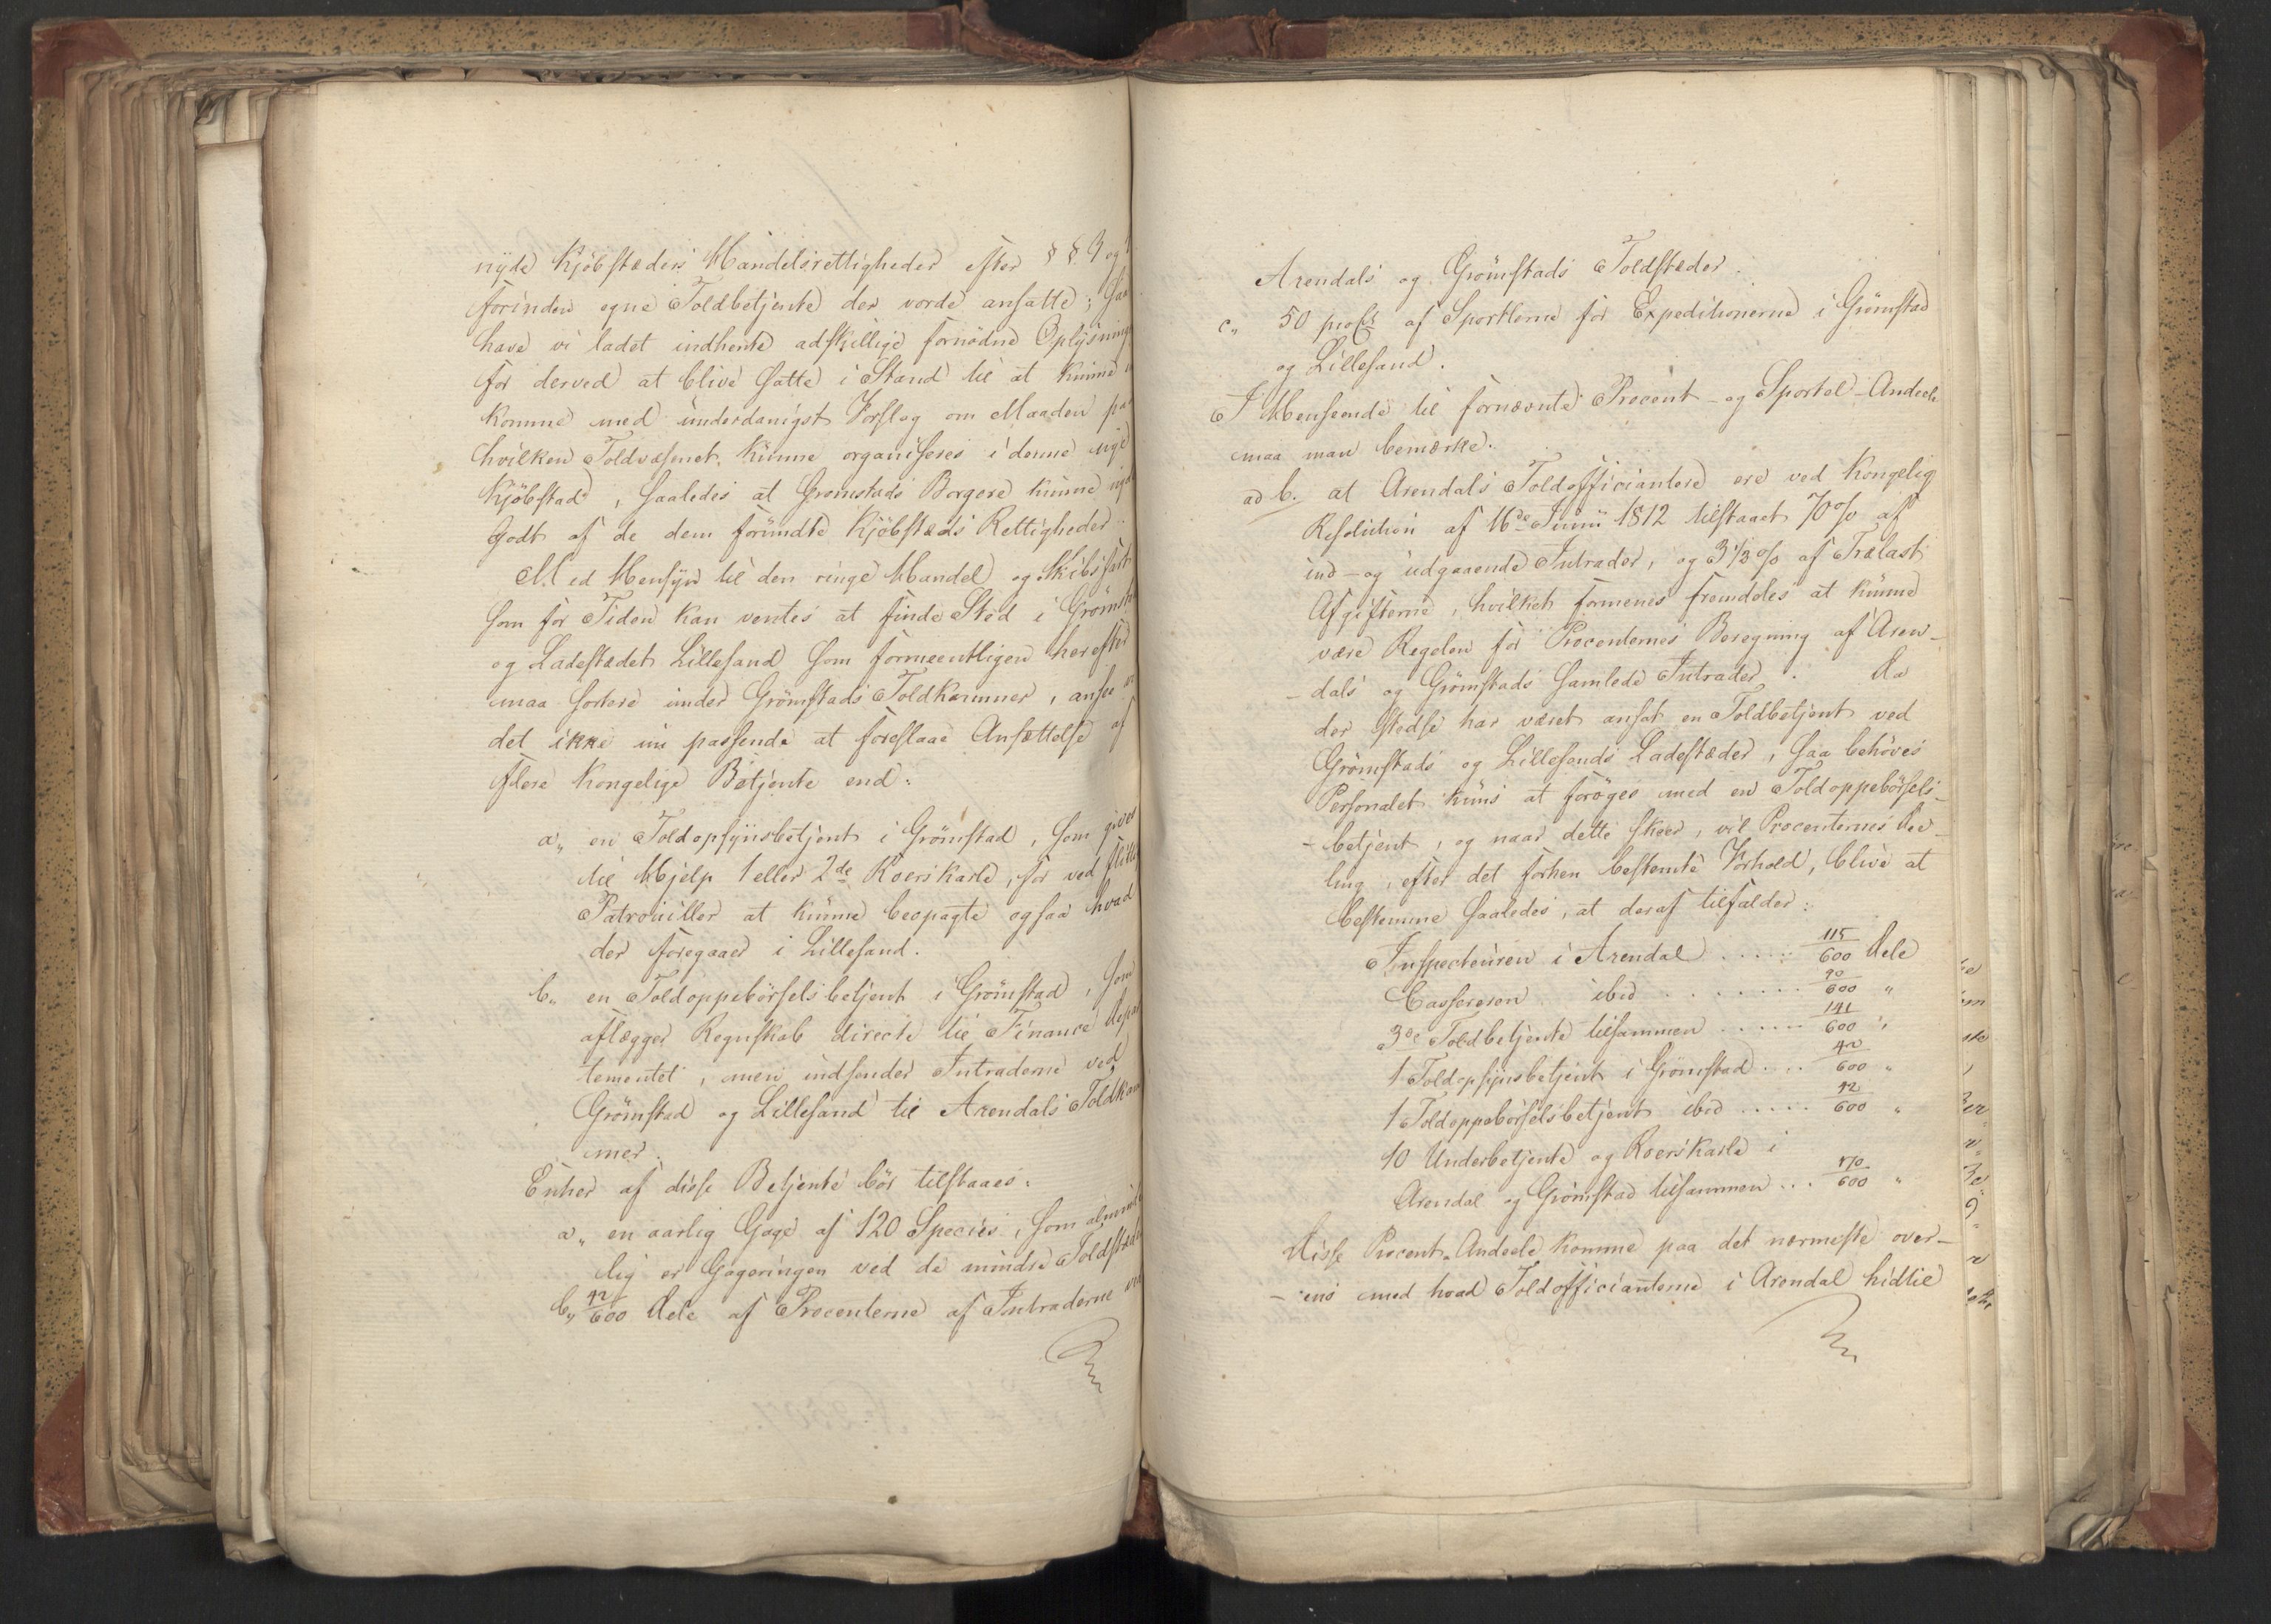 nyde Kjöbstæders Handelsrettigheder efter §§ 3 og
forinden egne Toldbetjente der vorde ansatte; saa
have vi ladet indhente adskillige fornødne Oplysning
for derved at blive satte i Stand til at kunne
komme med underdanigst Forslag om Maaden paa
hvilken Toldvæsenet kunne organiseres i denne nye
Kjöbstad, saaledes at Grømstads Borgere kunne nyde
godt af de dem forundte Kjöbstæds Rettigheder.
Med Hensyn til den ringe Handel og Skibsfart
som for Tiden kan ventes at finde Sted i Grömst
og Ladestædet Lillesand som formeentligen herefter
maa sortere under Grömstads Toldkammer, ansee
det ikke nu passende at foreslaae Ansættelse af
flere Kongelige Betjente end:
a„ en Toldopsynsbetjent i Grömstad, som gives
til Hjelp 1 eller 2de Roerskarle, for ved flitt
Patrouiller at kunne beopagte ogsaa hvad
der foregaaer i Lillesand.
b„ en Toldoppebörselsbetjent i Grömstad, som
aflægger Regnskab directe til Finance Depar
tementet, men indsender Intraderne ved
Grömstad og Lillesand til Arendals Toldkam
mer.
Enhver af disse Betjente bör tilstaaes:
a„ en aarlig Gage af 120 Species, som almind
lig er Gageringen ved de mindre Toldstæde
b„ 42/600 Dele af Procenterne af Intraderne ved
Arendals og Grömstads Toldstæder.
c„ 50 proCt af Sportlerne for Expeditionerne i Grömstad
og Lillesand.
I Henseende til fornævnte Procent- og Sportel-Andeele
maa man bemærke.
ad b. at Arendals Toldofficiantere ere ved Kongelig
Resolution af 16de Junii 1812 tilstaaet 70% af
ind- og udgaaende Intrader, og 3 1/3 % af Trælast
Afgifterne, hvilket formenes fremdeles at kunne
være Regelen for Procenternes Beregning af Aren-
-dals og Grömstads samlede Intrader. Da
der stedse har været ansat en Toldbetjent ved
Grömstads og Lillesands Ladestæder, saa behöves
Personalet kuns at foröges med en Toldoppebörsels-
-betjent, og naar dette skeer, vil Procenternes Dee-
ling, efter det forhen bestemte Forhold, blive at
bestemme saaledes, at deraf tilfalder:
Inspecteuren i Arendal ..... 115/600 Dele
Casserern ibid ....... 90/600 "
3de Toldbetjente tilsammen ...... 141/600 "
1 Toldopsynsbetjent i Grömstad ... 42/600 "
1 Toldoppebörselsbetjent ibid ..... 42/600 "
10 Underbetjente og Roerskarle i
Arendal og Grömstad tilsammen ... 170/600 "
Disse Procent-Andeele komme paa det nærmeste over-
-eens med hvad Toldofficianterne i Arendal hidtil